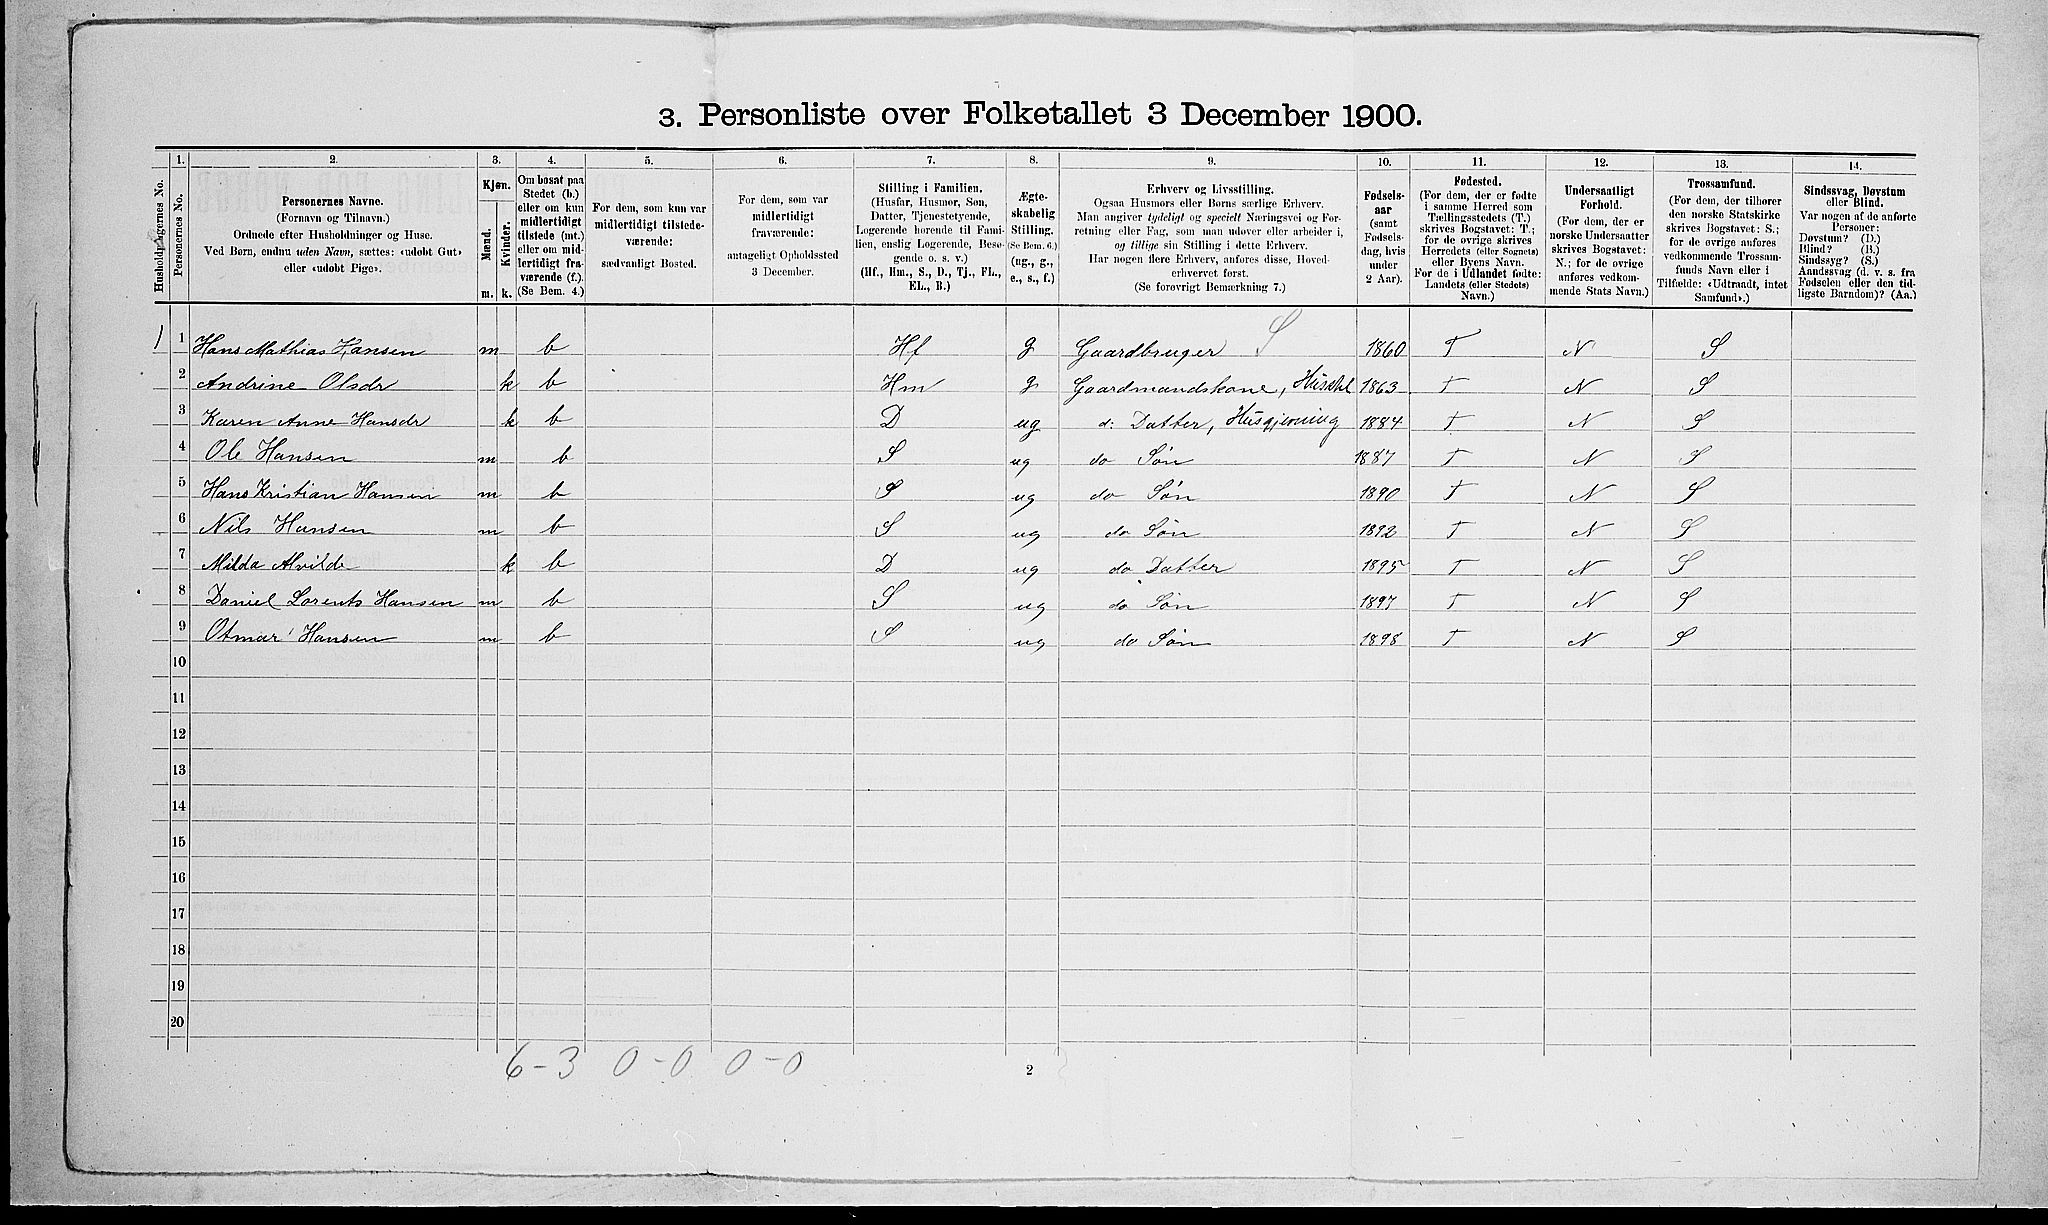 3. Personliste over Folketallet 3 December 1900.
Husholdningernes No.
1. Personernes No.
2. Personernes Navne. (Fornavn og Tilnavn.) Ordnede efter Husholdninger og Huse. Ved Børn, endnu uden Navn, sættes: «udøbt Gut» eller «udøbt Pige».
3. Kjøn. Mænd. m. Kvinder. k.
4. Om bosat paa Stedet (b.) eller om kun midlertidigt tilstede (mt.) eller om midlertidigt fraværende (f.). (Se Bem. 4.)
5. For dem, som kun var midlertidigt tilstedeværende: sædvanligt Bosted.
6. For dem, som var midlertidigt fraværende: antageligt Opholdssted 3 December.
7. Stilling i Familien. (Husfar, Husmor, Søn, Datter, Tjenestetyende, Logerende hørende til Familien, enslig Logerende, Besøgende o. s. v.) (Hf., Hm., S., D., Tj., FL., EL., B.)
8. Ægteskabelig Stilling. (Se Bem. 6.) (ug., g., e., s., f.)
9. Erhverv og Livsstilling. Ogsaa Husmors eller Børns særlige Erhverv. Man angiver tydeligt og specielt Næringsvei og Forretning eller Fag, som man udøver eller arbeider i, og tillige sin Stilling i dette Erhverv. Har nogen flere Erhverv, anføres disse, Hovederhvervet først. (Se forøvrigt Bemærkning 7.)
10. Fødselsaar (samt Fødselsdag, hvis under 2 Aar).
11. Fødested. (For dem, der er fødte i samme Herred som Tællingsstedets (T.) skrives Bogstavet: T.; for de øvrige skrives Herredets (eller Sognets) eller Byens Navn. For de i Udlandet fødte: Landets (eller Stedets) Navn.)
12. Undersaatligt Forhold. (For dem, der er norske Undersaatter skrives Bogstavet: N.; for de øvrige anføres vedkommende Stats Navn.)
13. Trossamfund. (For dem, der tilhører den norske Statskirke skrives Bogstavet: S.; for de øvrige anføres vedkommende Trossamfunds Navn eller i Tilfælde: «Udtraadt, intet Samfund».)
14. Sindssvag, Døvstum eller Blind. Var nogen af de anførte Personer: Døvstum? (D.) Blind? (B.) Sindssyg? (S.) Aandssvag (d. v. s. fra Fødselen eller den tidligste Barndom)? (Aa.)
1 1 Hans Mathias Hansen m b Hf g Gaardbruger S 1860 T N S
2 Andrine Olsdr k b Hm g Gaardmandskone, Husstel 1863 T N S
3 Karen Anne Hansdr k b D ug d: Datter, Husgjerning 1884 T N S
4 Ole Hansen m b S ug do Søn 1887 T N S
5 Hans Kristian Hansen m b S ug do Søn 1890 T N S
6 Nils Hansen m b S ug do Søn 1892 T N S
7 Milda Alvilde k b D ug do Datter 1895 T N S
8 Daniel Lorents Hansen m b S ug do Søn 1897 T N S
9 Otmar Hansen m b S ug do Søn 1898 T N S
10
11
12
13
14
15
16
17
18
19
20
6-3 0-0 0-0
2